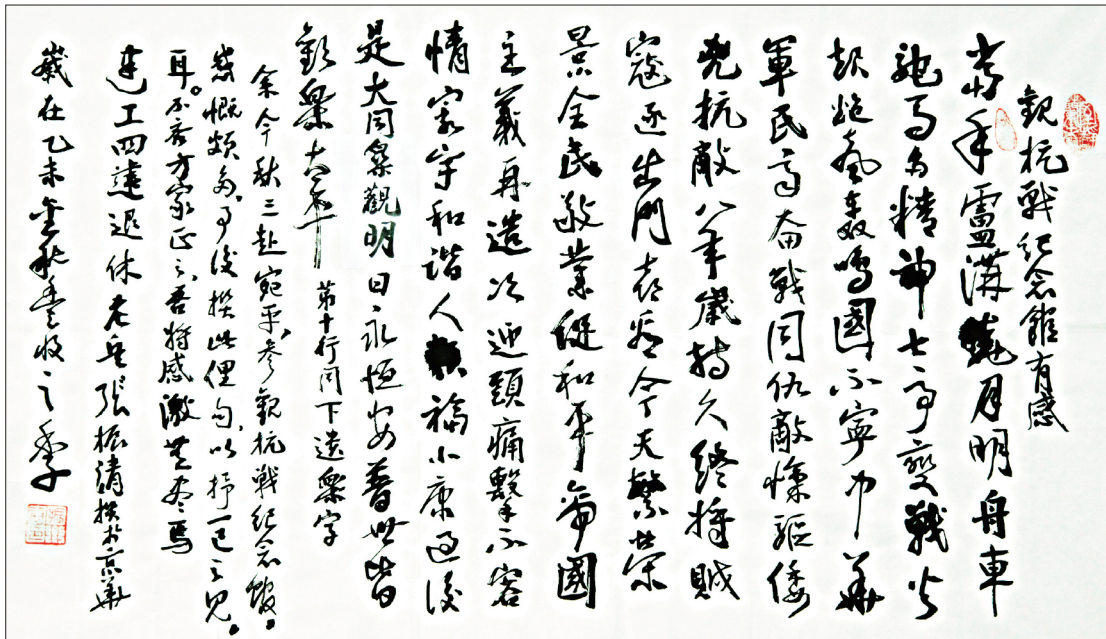 觀抗戰紀念館有感
當年盧溝曉月明舟車
馳馬多精神七七事變戰火
起炮竟轟鳴國不寧中華
軍民齊奋戰同仇敵愾驅倭
兇抗敵八年歲持久終将賊
寇逐出門喜看今天繁荣
景全民敬業促和平帝國
主義再造次迎頭痛擊不容
情家宇和諧人福小康過後
是大同樂觀明日永恒安普世皆
歡樂太平 第十行同下遺樂字
余今秋三赴宛平，参觀抗戰紀念馆。
感慨頗多，事後撰此俚句，以抒一己之見。
耳。不吝方家正之，吾将感激無盡焉
建工四建退休老兵張振清撰於京華
歲在乙未金秋豊收之季